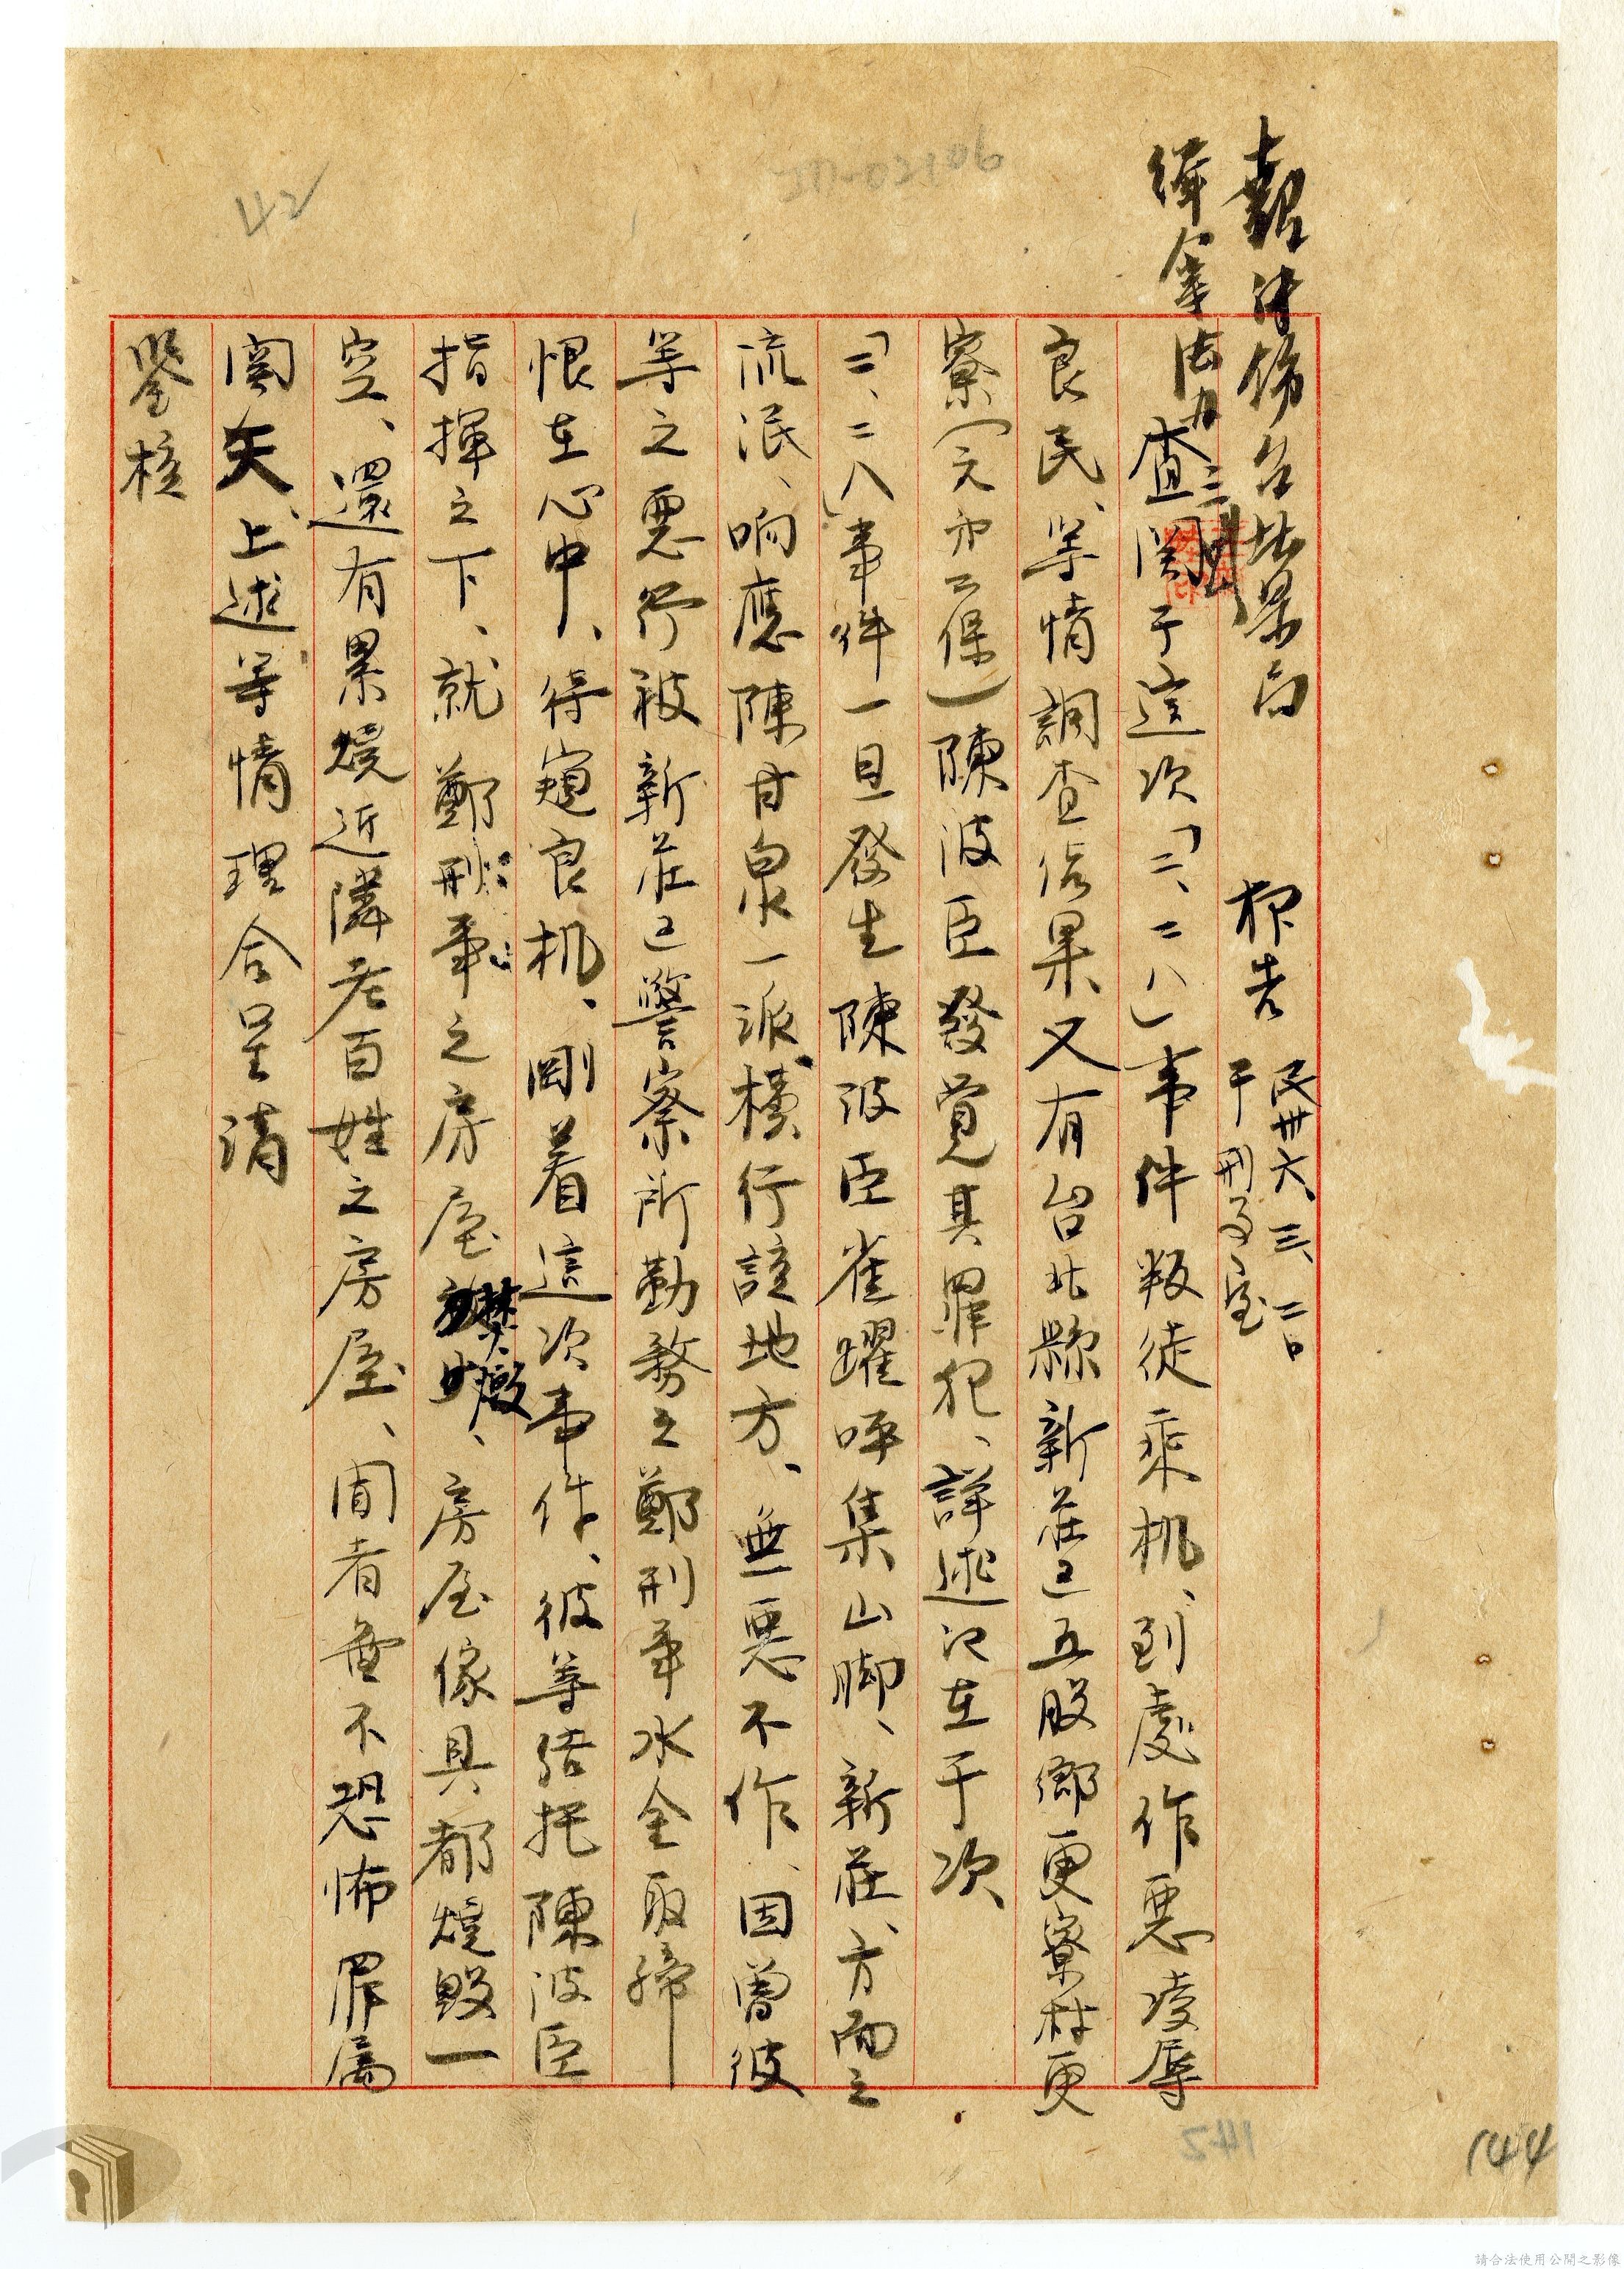 報告 民卅六、三、二〇
于刑事室
查関于這次「二、二八」事件叛徒乘机、到處作惡凌辱
良民、等情調查結果又有台北縣新莊區五股鄉更寮村更
寮(元第二保)陳波臣發覚其罪犯、詳述記在于次
「二、二八」事件一旦發生陳波臣雀躍呼集山脚、新莊、方面之
流氓、响應陳甘泉一派橫行該地方、無惡不作、因曾彼
等之惡行被新莊區警察所勤務之鄭刑事水全取締
恨在心中、待窺良机、剛着這次事件、彼等結托陳波臣
指揮之下、就鄭刑事之房屋焚燬、房屋傢具都燒毀一
空、還有累燒近隣老百姓之房屋、聞者無不恐怖罪属
関矢、上述等情理合呈请
鑒核
飭台北縣
緝拿法办
三
42
JM-02106
142
144
請合法使用公開之影像